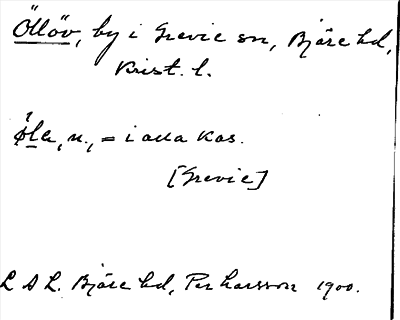 Öllöv, by i Grevie sn, Bjäre hd,
Krist. l.
Øla, n., = i alla kas.
[Grevie]
L A L. Bjäre hd, Per Larsson 1900.